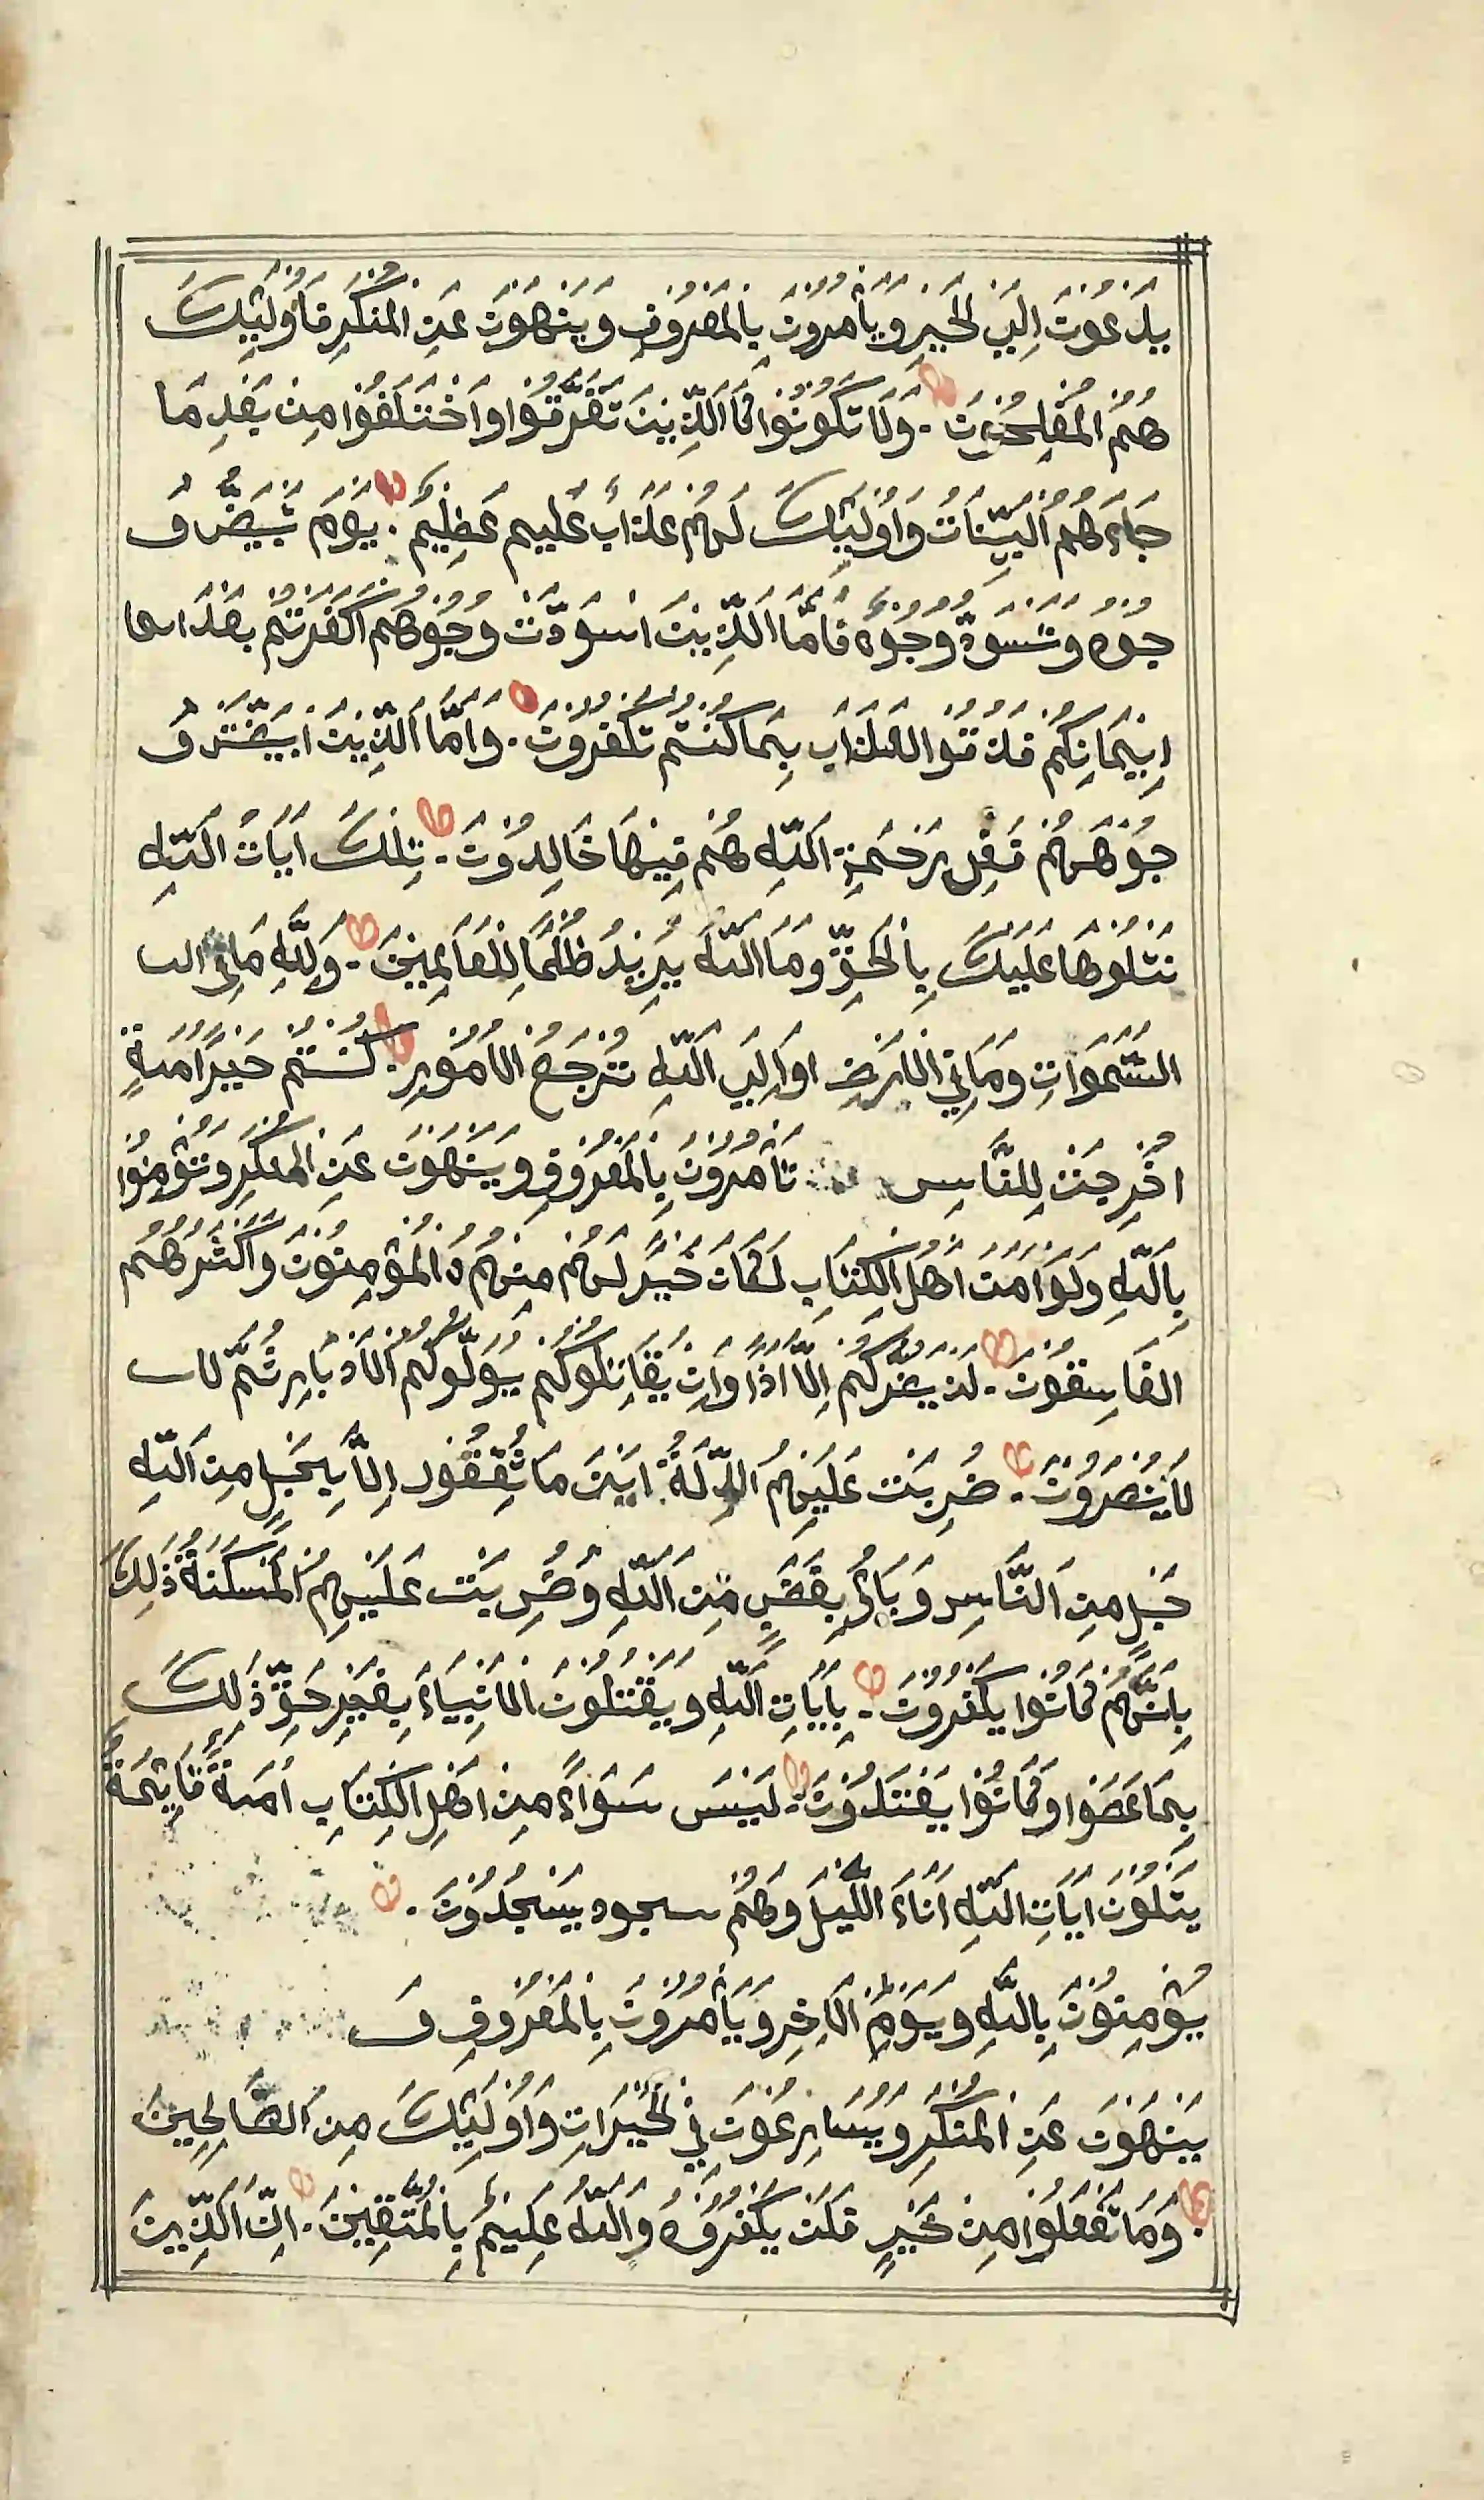 يَدْعُونَ اِلَي الْخَيْرِ وَيَأْمُرُونَ بِالْمَعْرُوفِ وَيَنْهَوْنَ عَنِ الْمُنْكَرِ فَاُولَئِكَ
هُمُ الْمُفْلِحُونَ . وَلَا تَكُونُوا كَاالَّذِينَ تَفَرَّقُوا وَاخْتَلَفُوا مِنْ بَعْدِ مَا
جَاءَهُمُ الْبَيِّنَاتُ وَاُولَئِكَ لَهُمْ عَذَابٌ عَلِيم عَظِيمٌ . يَوْمَ تَبْيَضُّ وُ
جُوهٌ وَتَسْوَدُّ وُجُوهٌ فَاَمَّا الَّذِينَ اسْوَدَّتْ وُجُوهُهُمْ اَكَفَرْتُمْ بَعْدَ اىما
اِيْمَانِكُمْ فَذُوقُوا الْعَذَابَ بِمَا كُنْتُمْ تَكْفُرُونَ . وَاَمَّا الَّذِينَ ابْيَضَّتْ وُ
جُوهُهُمْ فَفِي رَحْمَةِ اللّٰهِ هُمْ فِيهَا خَالِدُونَ . تِلْكَ اَيَاتُ اللّٰهِ
نَتْلُوهَا عَلَيْكَ بِالْحَقِّ وَمَا اللّٰهُ يُرِيدُ ظُلْمًا لِلْعَالَمِينَ . وَلِلّٰهِ مَا فِي الس
السَّمَوَاتِ وَمَا فِي الْاَرْضِ وَاِلَي اللّٰهِ تُرْجَعُ الْاُمُورِ . كُنْتُمْ خَيْرَ اُمَةٍ
اُخْرِجَتْ لِلنَّاسِ تَأْمُرُونَ بِالْمَعْرُوفِ وَيَنْهَوْنَ عَنِ الْمُنْكَرِ وَتُؤْمِنُوا
بِاللّٰهِ وَلَوْ اَمَنَ اَهْلُ الْكِتَابِ لَكَانَ خَيْرً لَهُمْ مِنْهُمُ الْمُؤْمِنُونَ وَاَكْثَرُهُمُ
الْفَاسِقُونَ . لَنْ يَضُرُّكُمْ اِلَّا اَذًا وَاِنْ يُقَاتِلُوكُمْ يُوَلُّوكُمُ الْاَدْبَارِ ثُمَّ لا
لَا يُنْصَرُونَ . ضُرِبَتْ عَلَيْهِمُ الذِّلَةُ اَيْنَ مَا ثُقِفُود اِلَّا بِحَبْلٍ مِن اللّٰهِ
حَبْلٍ مِنِ النَّاسِ وَبَائُ بِغَضَبٍ مِنَ اللّٰهِ وَضُرِبَتْ عَلَيْهِمُ الْمَسْكَنَةُ ذَلِكَ
بِاَنَّهُمْ كَانُوا يَكْفُرُونَ . بِاَيَاتِ اللّٰهِ وَيَقْتُلُونَ الْاَنْبِيَاءَ بِغَيْرِ حَقٍّ ذَلِكَ
بِمَا عَصَوْا وَكَانُوا يَعْتَدُونَ . لَيْسَ سَوَاءً مِنْ اَهْلِ الْكِتَابِ اُمَةٌ قَائِمَةٌ
يَتْلُونَ اَيَاتِ اللّٰهِ اَنَاءَ اللَّيْلَ وَهُمْ سجود يَسْجُدُونَ .
يُؤْمِنُونَ بِاللّٰهِ وَيَوْمِ الْاَخِرِ وَيَأْمُرُونَ بِالْمَعْرُوفِ وَ
يَنْهَوْنَ عَنِ الْمُنْكَرِ وَيُسَارِعُونَ فِي الْخَيْرَاتِ وَاُولَئِكَ مِن الصَّالِحِينَ
. وَمَا تَفْعَلُوا مِنْ خَيْرٍ فَلَنْ يُكْفَرُوهُ وَاللّٰهُ عَلِيمٌ بِالْمُتَّقِينَ . اِنَّ الَّذِينَ